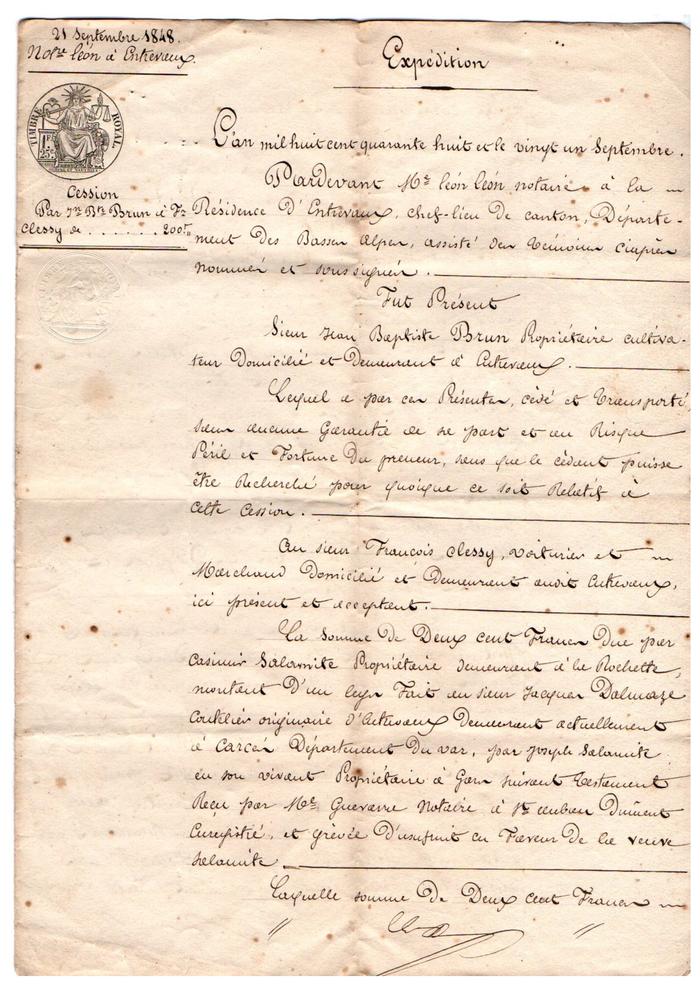 21 Septembre 1848.
Not.re Léon à Entrevaux.
Expédition
TIMBRE ROYAL
25c
Cession
Par Jn Bte Brun à Fs
Clessy de . . . . . . 200f
L'an mil huit cent quarante huit et le vingt un Septembre.
Pardevant Me Léon Léon notaire à la
Résidence d'Entrevaux, chef-lieu de canton, Départe-
ment des Basses Alpes, assisté des témoins ciaprès
nommés et soussignés.
Fut Présent
Sieur Jean Baptiste Brun Propriétaire cultiva-
teur Domicilié et Demeurant à Entrevaux.
Lequel a par ces Présentes, cédé et transporté
sans aucune Garantie de sa part et au Risque
Péril et Fortune du preneur, sans que le cédant puisse
être Recherché pour quoique ce soit Relatif à
cette cession.
Au sieur François Clessy, voiturier et
Marchand Domicilié et Demeurant audit Entrevaux,
ici présent et acceptant.
La somme de Deux cent Francs due par
Casimir Salamite Propriétaire demeurant à la Rochette,
montant D'un legs Fait au sieur Jacques Dalmaze
coutelier originaire d'Entrevaux Demeurant actuellement
à Carcès Département du var, par Joseph Salamite
en son vivant Propriétaire à Gars suivant testament
Reçu par Me Guevarre Notaire à St auban Dûment
Enregistré, et grévée D'usufruit en Faveur de la veuve
Salamite.
Laquelle somme de Deux cent Francs
" "